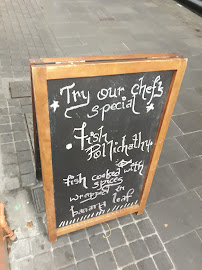 Try our chefs
special
. Fish
Pollichathu
fish cooked with
spices
wrapped in
banana leaf